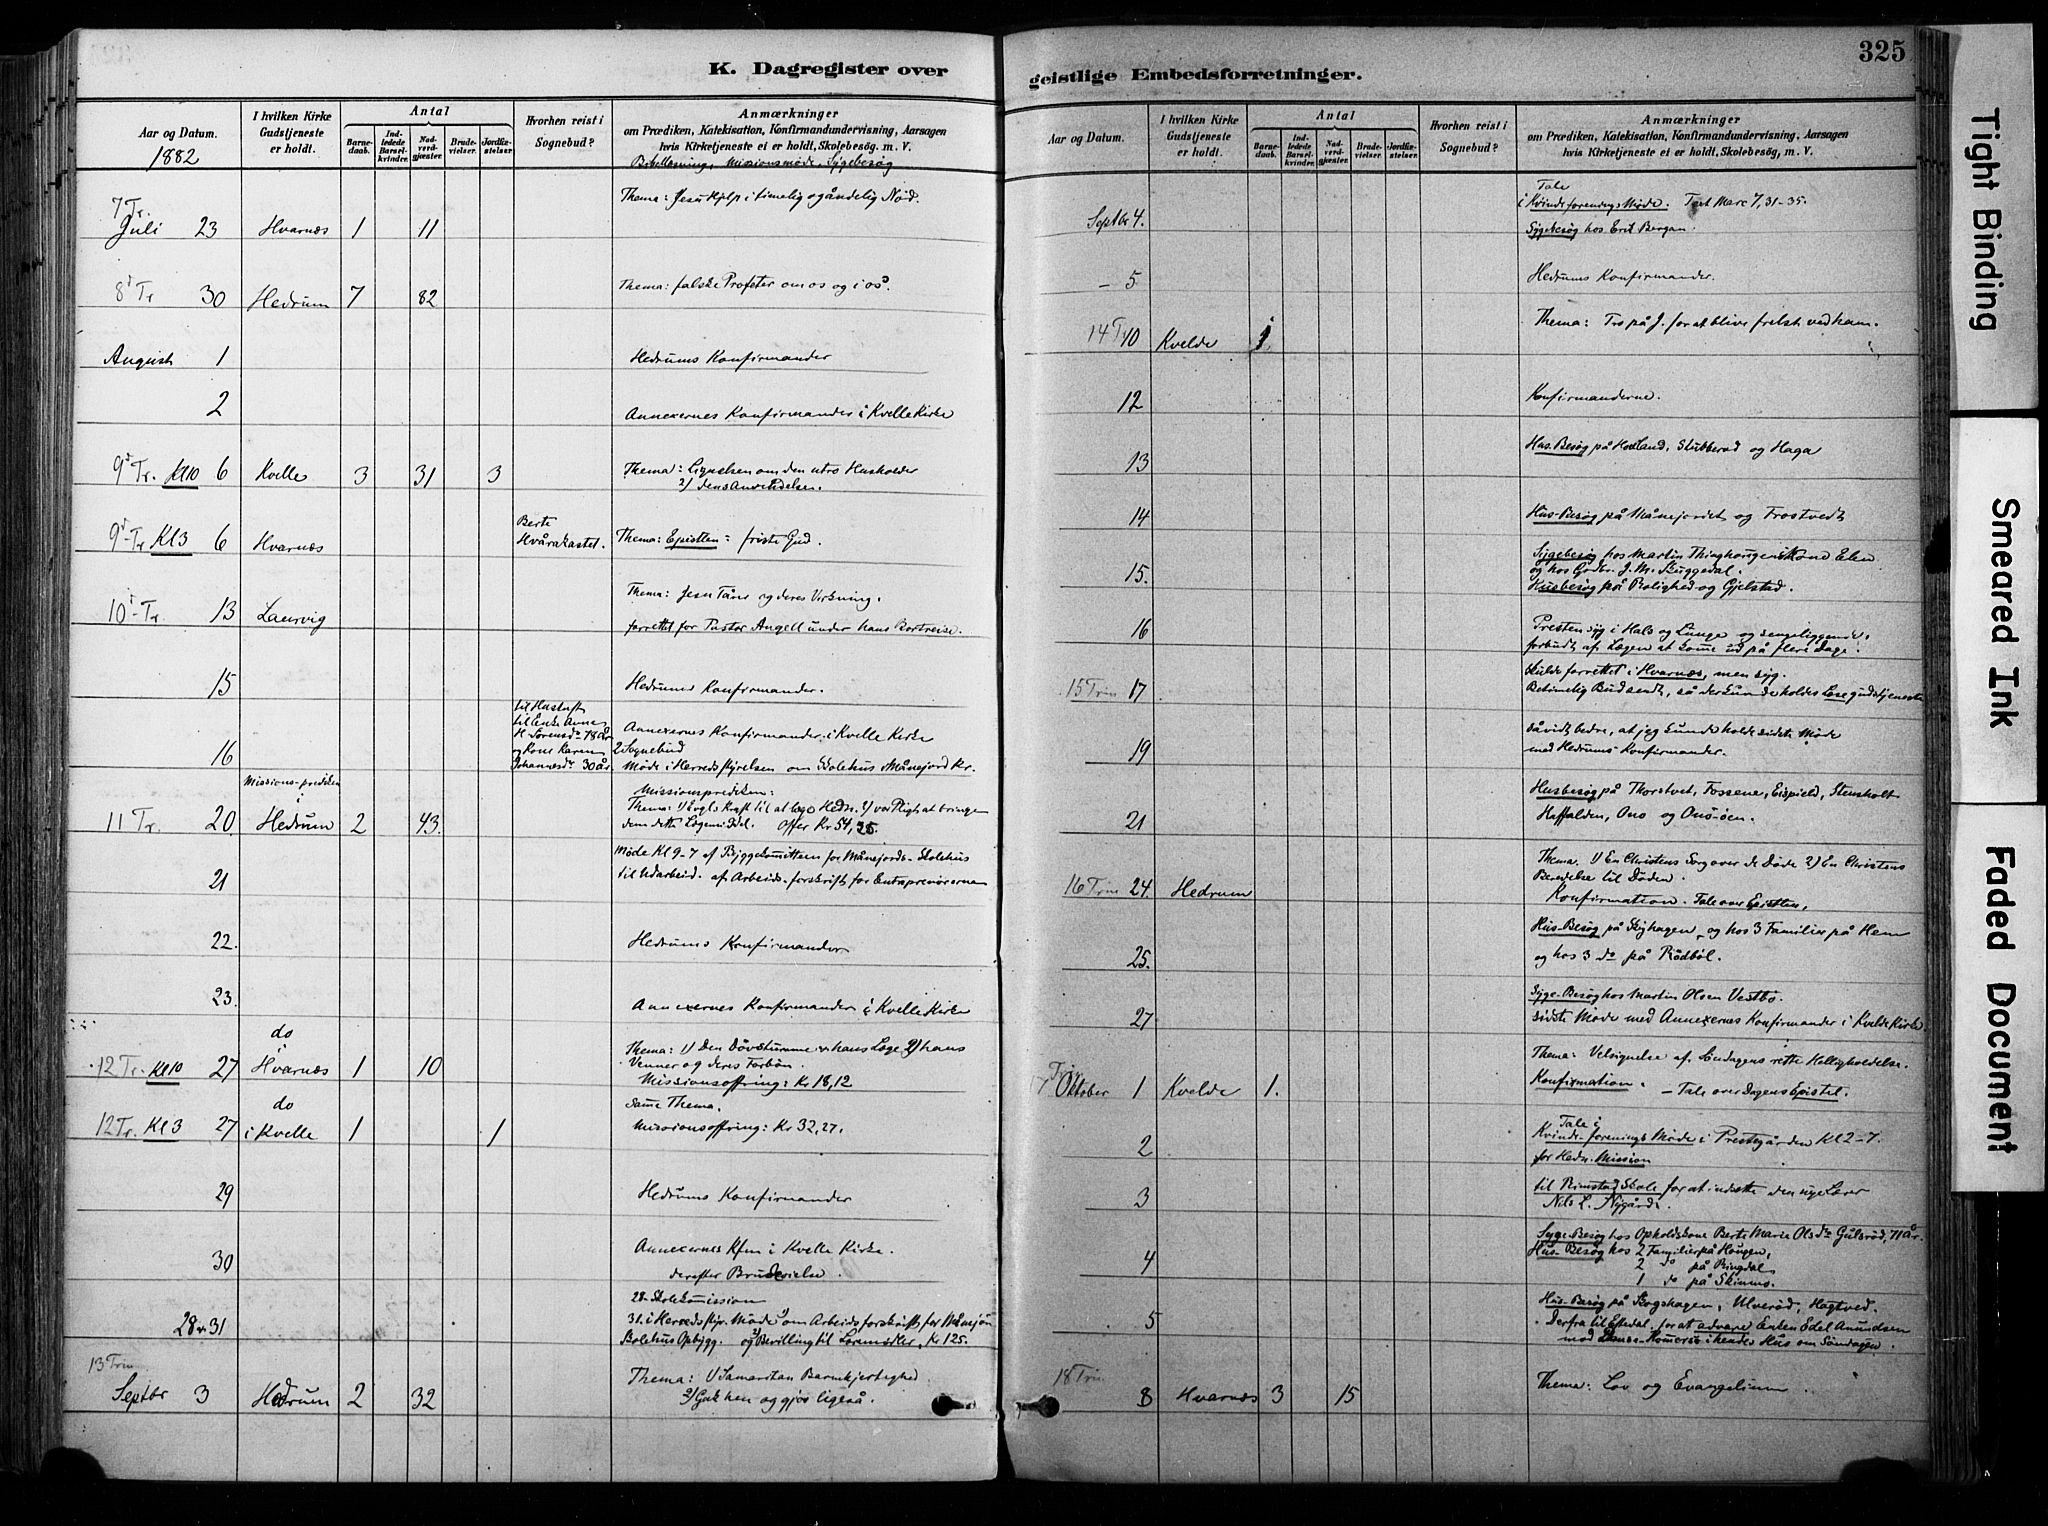 K. Dagregister over
Aar og Datum.
1882
I hvilken Kirke
Gudstjeneste
er holdt.
Antal
Barne-
daab.
Ind-
ledede
Barsel-
kvinder.
Nad-
verd-
gjæster
Brude-
vielser.
Jordfæ-
stelser.
Hvorhen reist i
Sognebud?
Anmærkninger
om Prædiken, Katekisation, Konfirmandundervisning, Aarsagen
hvis Kirketjeneste ei er holdt, Skolebesøg. m. V.
Bibellæsning, Missionsmøde, Sygebesøg
7 Tr.
Juli 23 Hvarnæs 1 11 Thema: Jesu Hjelp i timelig og åndelig Nød.
8d Tr 30 Hedrum 7 82 Thema: falske Profeter om os og i os.
August 1 Hedrums Konfirmander
2 Annexernes Konfirmander i Kvelle Kirke
9d Tr. Kl 10 6 Kvelle 3 31 3 Thema: Lignelsen om den utro Husholder
2) dens Anvendelse.
9d Tr Kl 3 6 Hvarnæs Berte
Hvårakastet. Thema: Epistlen = friste Gud.
10d Tr 13 Laurvig Thema: Jesu Tårer og deres Virkning.
forrettet for Pastor Angell under hans Bortreise.
15 Hedrums Konfirmander.
16 til Enke Anne
H. Sørensdr 78 år
og Kone Karen
Johannesdr 30 år. Annexernes Konfirmander i Kvelle Kirke
2 Sognebud
Møde i Herredsstyrelsen om Skolehus Månejord Kr.
Missions-prediken
i
11 Tr. 20 Hedrum 2 43 Missionsprediken:
Thema: 1) Evgls Kraft til at læge Hedn. 2) vor Pligt at bringe
dem dette Lægemiddel. Offer Kr 54,35.
21 Møde Kl 9-7 af Byggekomitteen for Månejords-Skolehus
til Udarbeid. af Arbeids-forskrift for Entreprenørerne
22. Hedrums Konfirmander
23. Annexernes Konfirmander i Kvelle Kirke
do
i
12 Tr. Kl 10 27 Hvarnæs 1 10 Thema: 1) Den Døvstumme hans Læge 2) hans
Venner og deres Forbøn.
Missionsoffring: Kr 18,12
do
12 Tr. Kl 3 27 i Kvelle 1 1 Same Thema.
Missionsoffring: Kr 32,27.
29 Hedrums Konfirmander
30 Annexernes Kfm i Kvelle Kirke.
derefter Brudevielse.
28 31 28 Skolekommission
31. i Herredsstyr. Møde 1) om Arbeidsforskrift for Månejor
Skolehus Opbygg. og 2) Bevilling til Kr 125.
13 Trin
Septbr 3 Hedrum 2 32 Thema: 1) Samaritan Barmhjertighed
2) Gak hen og gjør ligeså.
geistlige Embedsforretninger.
325
Aar og Datum.
I hvilken Kirke
Gudstjeneste
er holdt.
Antal
Barne-
daab.
Ind-
ledede
Barsel-
kvinder.
Nad-
verd-
gjæster
Brude-
vielser.
Jordfæ-
stelser.
Hvorhen reist i
Sognebud?
Anmærkninger
om Prædiken, Katekisation, Konfirmandundervisning, Aarsagen
hvis Kirketjeneste ei er holdt, Skolebesøg, m. V.
Septbr 4. Tale
i Kvindeforenings Møde. Text Marc 7, 31-35.
Sygebesøg hos Erik Bergan.
– 5 Hedrums Konfirmander.
14 Tr 10 Kvelde 1 Thema: Tro på J. for at blive frelst ved ham.
12 Konfirmanderne.
13 Hus-Besøg på Hovland, Stubberød og Haga
14 Hus-Besøg på Månejordet og Trostvedt
15. Sygebesøg hos Martin Kone Elen
og hos Grdbr. J. M. Skuggedal.
Husbesøg på Rolighed og Gjelstad.
16 Presten syg i Hals og Lunge og sengeliggende.
forbudt af Lægen at komme ud på flere Dage.
15 Trin 17 skulde forrettet i Hvarnæs, men syg.
Betimelig Bud sendt, så der kunde holdes Læsegudstjeneste
19 såvidt bedre, at jeg kunde holde sidste Møde
med Hedrums Konfirmander.
21 Husbesøg på Thorstvet, Fossene, Eispield, Stensholt
Haffalden, Ono og Onö-öen.
16 Trin 24. Hedrum Thema. 1) En Christens Sorg over de Døde 2) En Christens
Beredelse til Døden.
Konfirmation. Tale over Epistlen.
25. Hus-Besøg på Skyhagen, og hos 3 Familier på Hem
og hos 3 do på Rødbøl.
27 Syge-Besøg hos Martin Olsen Vestbø.
sidste Møde med Annexernes Konfirmander i Kvelde Kirke
17 Trin
Oktober 1 Kvelde 1. Thema: Velsignelse af Søndagens rette Helligholdelse.
Konfirmation. – Tale over Dagens Epistel.
2 Tale i
Kvinde-forenings Møde i Prestegården Kl 2-7.
for Hedn. Mission
3 til Rimstad Skole for at indsætte den nye Lærer
Nils L. Nygård.
4 Syge-Besøg hos Opholdskone Berte Marie Olsdr Gulsrød, 71 år.
Hus-Besøg hos 2 Familier på Hougen,
2 do på Ringdal
1 do på Skinmo.
5 Hus-Besøg på Skogshagen, Ulverød, Hagtved.
Derfra til Eftedal, for at advare Enken Edel Amundsen
mod i hendes Hus om Søndagen.
18 Trin
8 Hvarnæs 3 15 Thema: Lov og Evangelium
Tight Binding
Smeared Ink
Faded Document